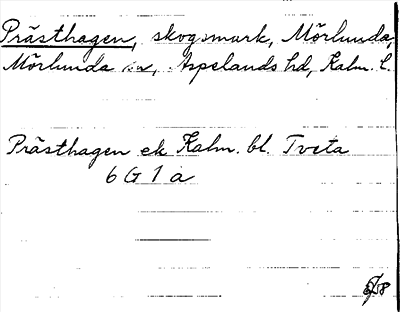 Prästhagen, skogsmark, Mörlunda,
Mörlunda sn, Aspelands hd, Kalm. l.
Prästhagen ek Kalm. bl. Tveta
6 G 1 a